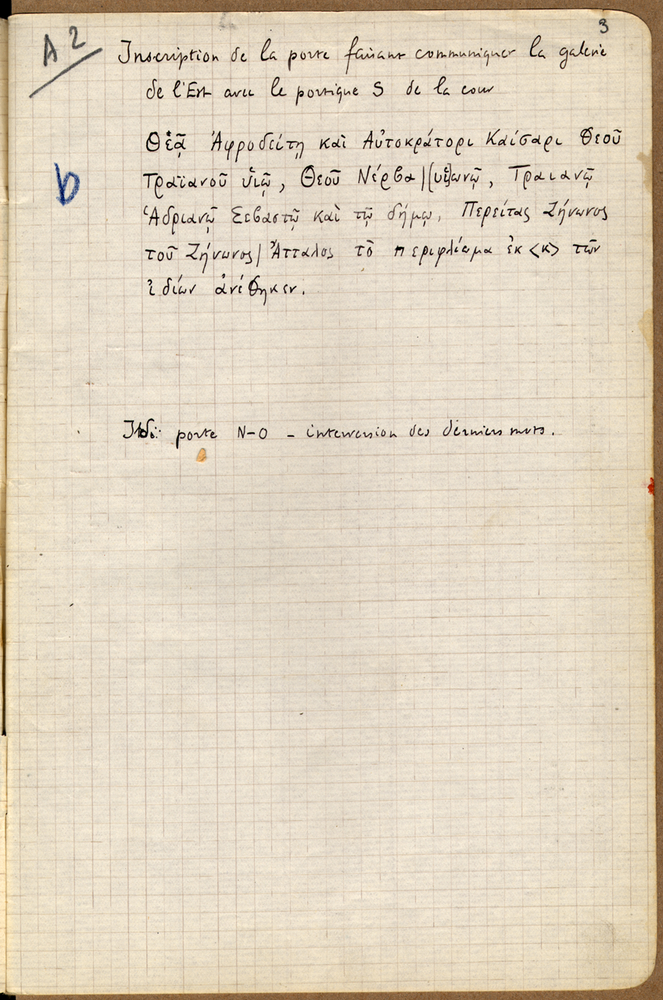 3
A 2
Inscription de la porte faisant communiquer la galerie
de l'Est avec le portique S de la cour
b
Θεᾷ Ἀφροδείτῃ καὶ Αὐτοκράτορι Καίσαρι Θεοῦ
Τραϊανοῦ ὑιῷ, Θεοῦ Νέρβα|[υἱ]ωνῷ, Τραιανῷ
Ἁδριανῷ Σεβαστῷ καὶ τῷ δήμῳ, Περείτας Ζήνωνος
τοῦ Ζήνωνος| Ἄτταλος τὸ περιφλίωμα ἐκ <κ> τῶν
ἰδίων ἀνέθηκεν.
porte N-O - interversion des derniers mots.